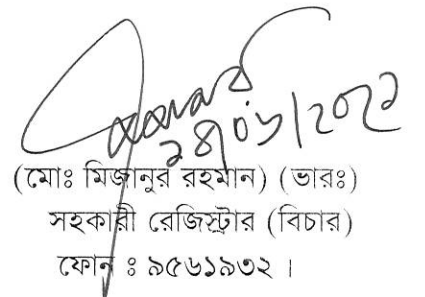 (মোঃ মিজানুর রহমান) (ভারঃ)
সহকারী রেজিস্ট্রার (বিচার)
ফোন ঃ ৯৫৬১৯৩২ ।